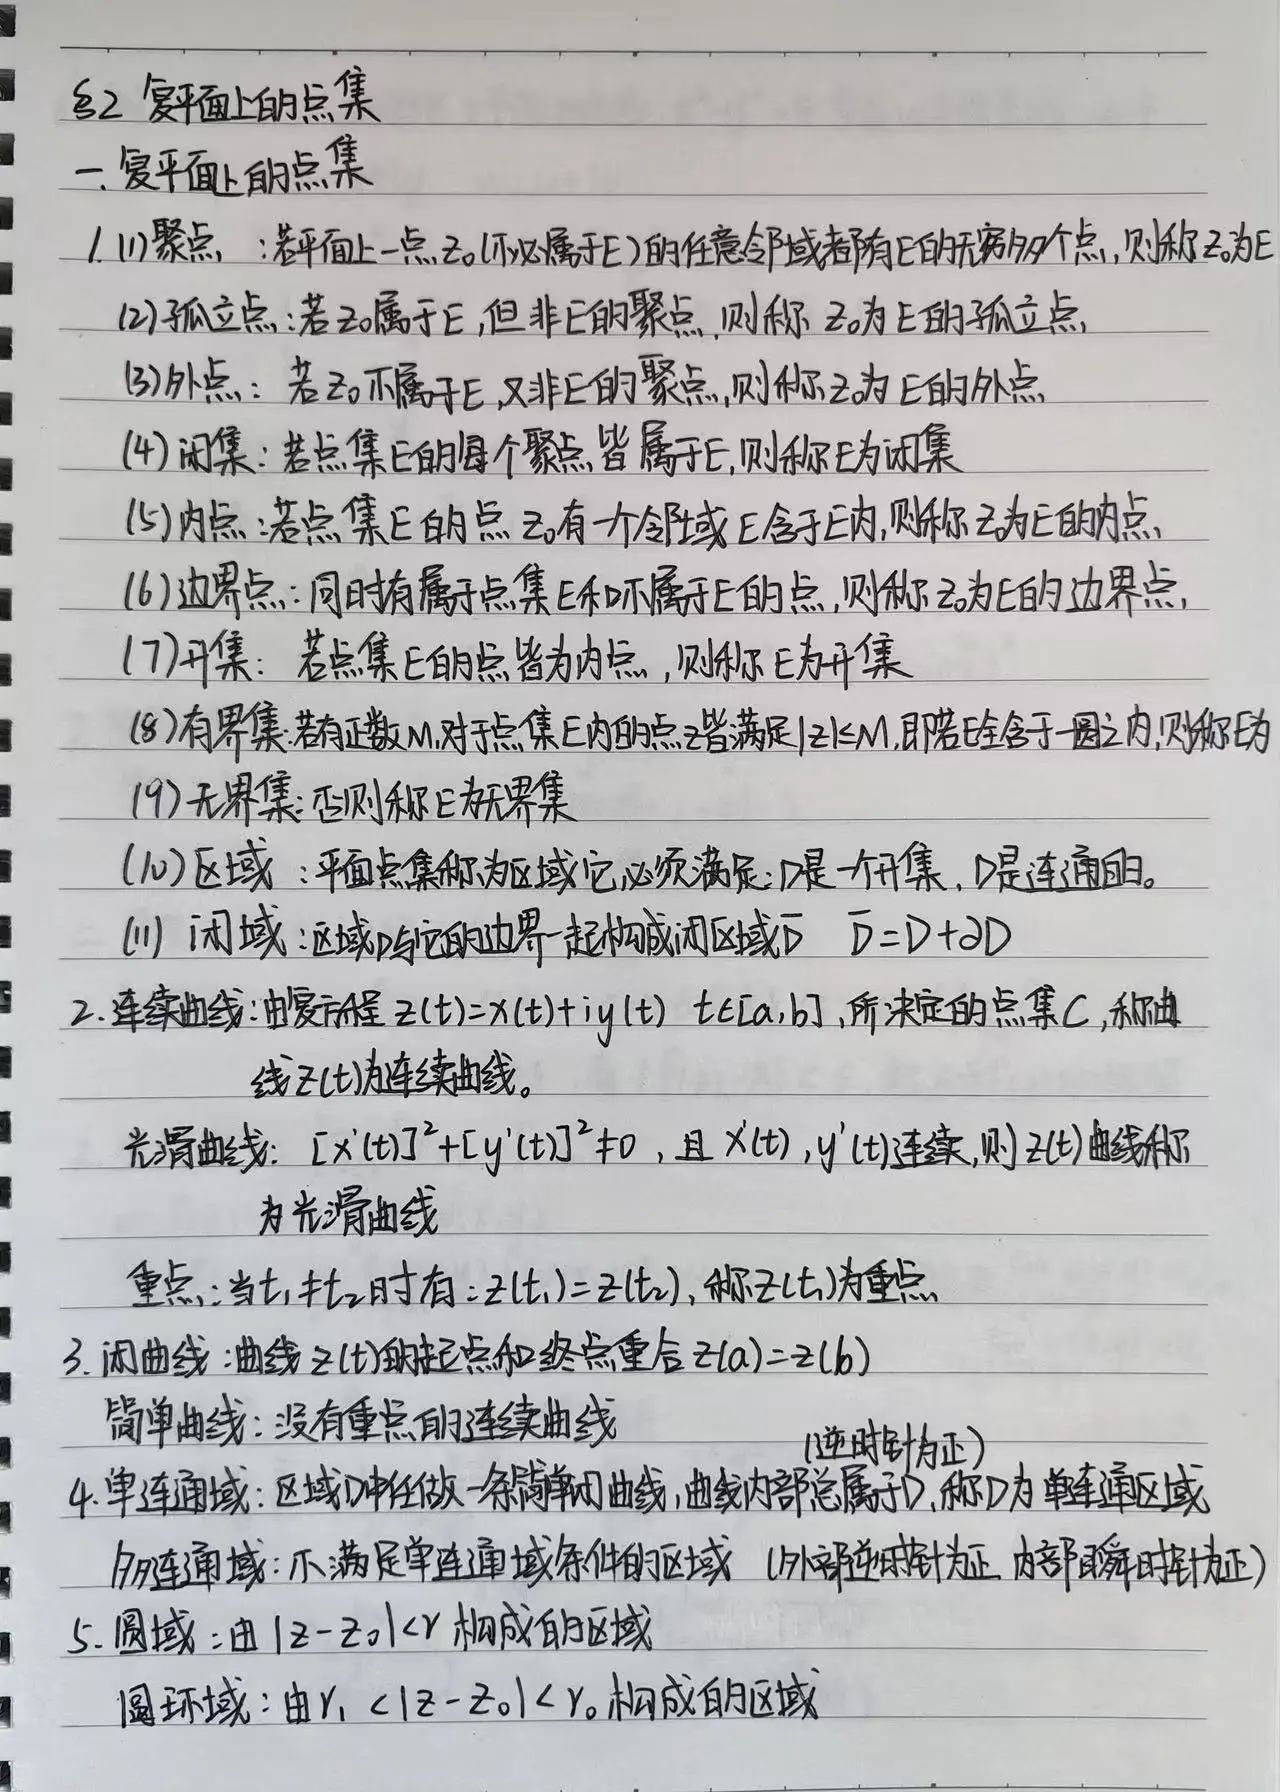 §2 复平面上的点集
一. 复平面上的点集
1. (1) 聚点 : 若平面上一点z₀(不必属于E)的任意邻域都有E的无穷多个点,则称z₀为E
(2) 孤立点: 若z₀属于E,但非E的聚点,则称 z₀为E的孤立点
(3) 外点: 若z₀不属于E,又非E的聚点,则称z₀为E的外点
(4) 闭集: 若点集E的每个聚点皆属于E,则称E为闭集
(5) 内点: 若点集E的点z₀有一个邻域E含于E内,则称z₀为E的内点
(6) 边界点: 同时有属于点集E和不属于E的点,则称z₀为E的边界点
(7) 开集: 若点集E的点皆为内点,则称E为开集
(8) 有界集: 若有正数M,对于点集E内的点z皆满足|z|≤M,即若E全含于一圆之内,则称E为
(9) 无界集: 否则称E为无界集
(10) 区域 : 平面点集称为区域它必须满足: D是一个开集、D是连通的。
(11) 闭域: 区域D与它的边界一起构成闭区域D̅ D̅=D+∂D
2. 连续曲线: 由复方程 z(t)=x(t)+iy(t) t∈[a,b],所决定的点集C,称曲
线z(t)为连续曲线。
光滑曲线: [x'(t)]²+[y'(t)]²≠0 ,且 x'(t),y'(t)连续,则z(t)曲线称
为光滑曲线
重点: 当t₁≠t₂时有: z(t₁)=z(t₂),称z(t₁)为重点
3. 闭曲线: 曲线z(t)的起点和终点重合z(a)=z(b)
简单曲线: 没有重点的连续曲线
(逆时针为正)
4. 单连通域: 区域D中任做一条简单闭曲线,曲线内部总属于D,称D为单连通区域
多连通域: 不满足单连通域条件的区域 (外部逆时针为正 内部瞬时针为正)
5. 圆域: 由|z-z₀|<r 构成的区域
圆环域: 由r₁<|z-z₀|<r₀构成的区域